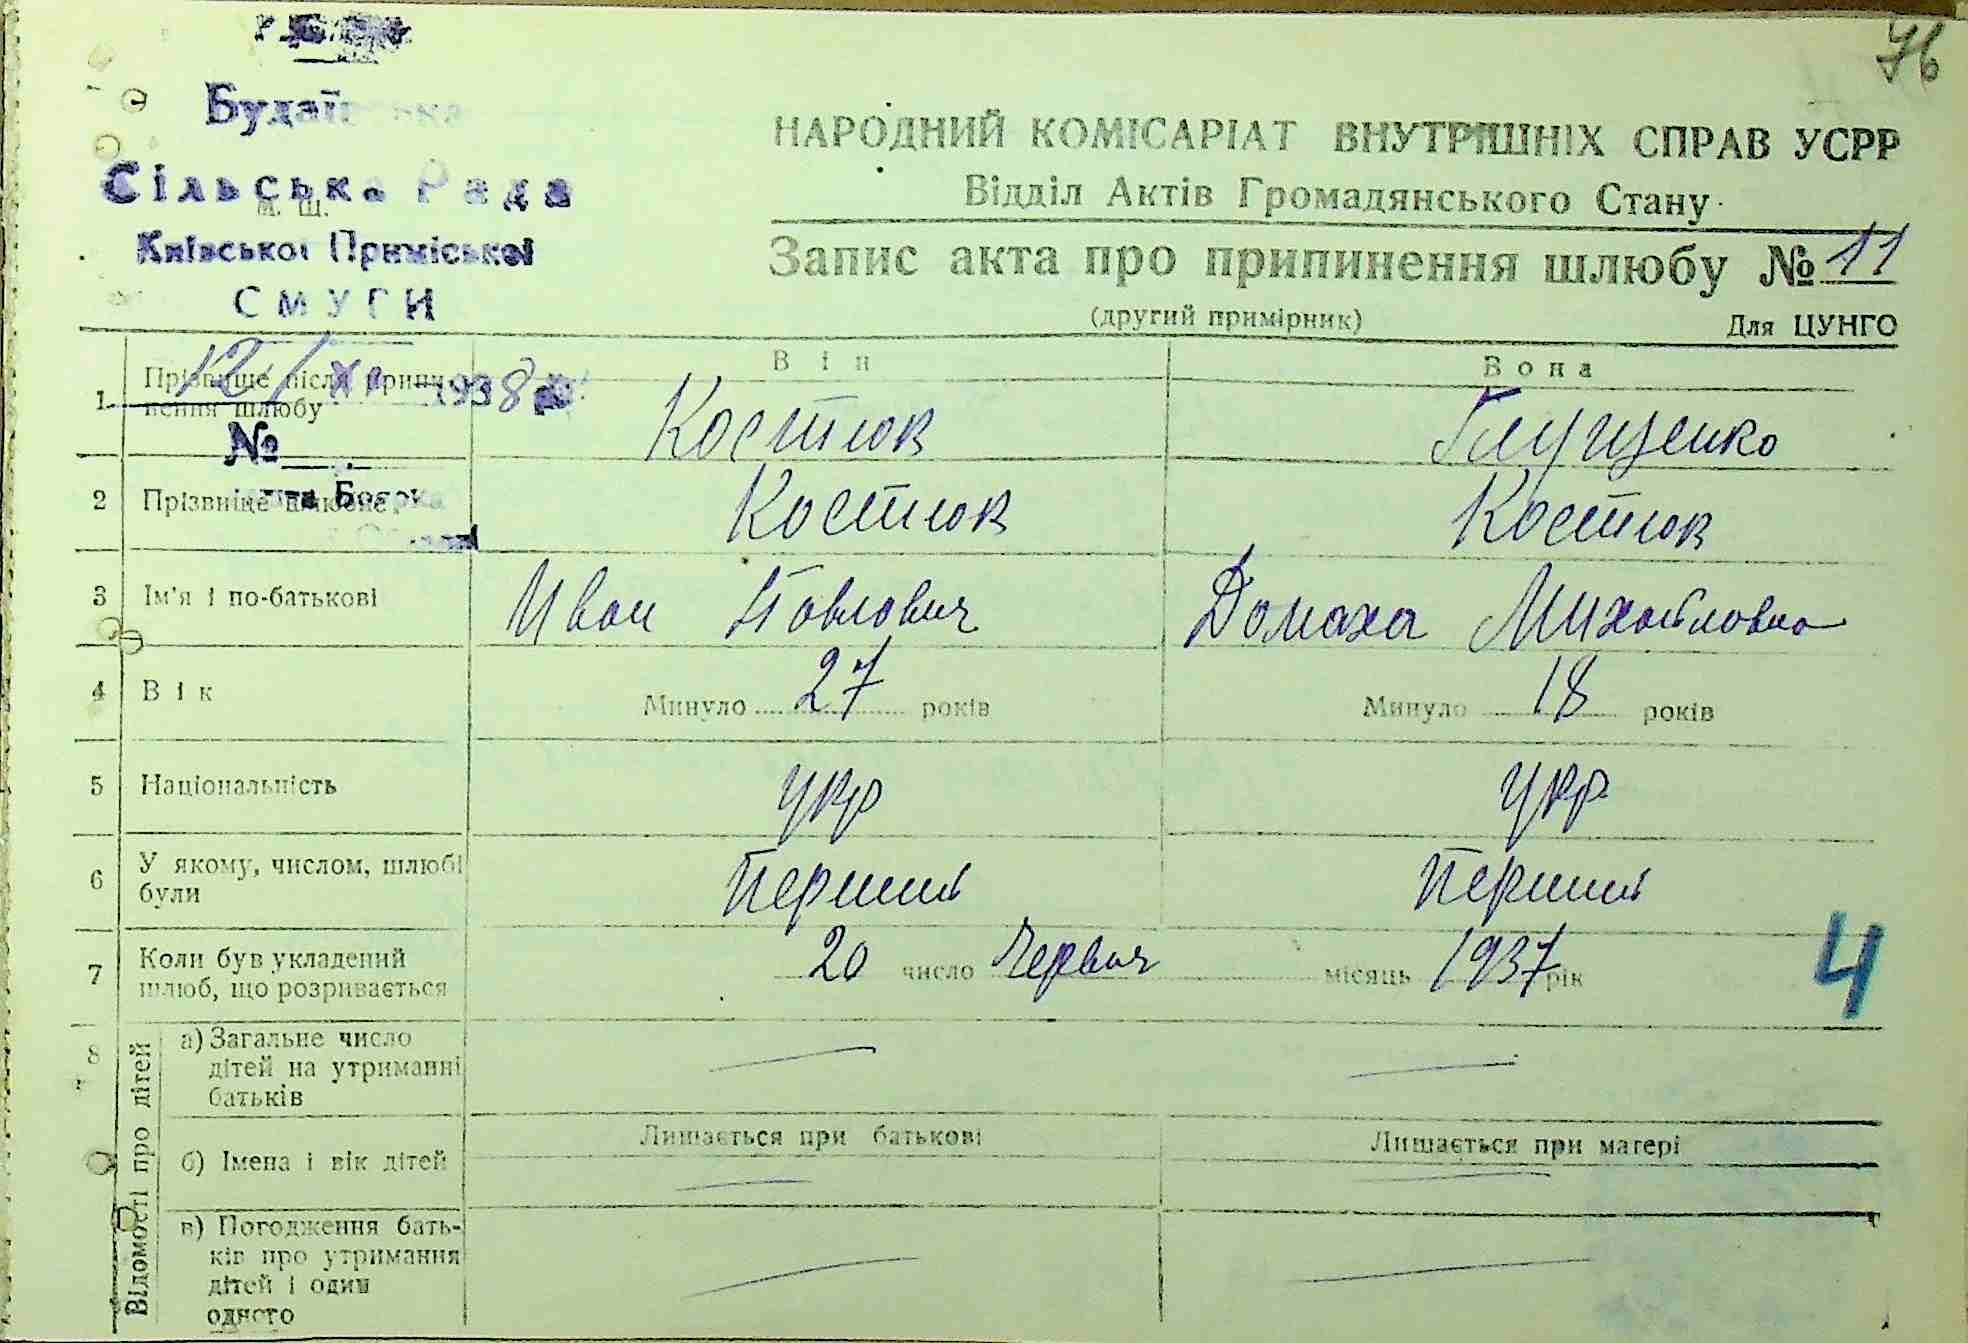 76
Будаївська
Сільська Рада
м. ш.
Київської Приміської
СМУГИ
12/XI 1938
№
НАРОДНИЙ КОМІСАРІАТ ВНУТРІШНІХ СПРАВ УСРР
Відділ Актів Громадянського Стану
Запис акта про припинення шлюбу № 11
(другий примірник)
Для ЦУНГО
Він
Вона
1 Прізвище після припи-
нення шлюбу
Костюк
Глущенко
2 Прізвище шлюбне
Костюк
Костюк
Боярка
3 Ім'я і по-батькові
Иван Павлович
Домаха Михайловна
4 Вік
Минуло 27 років
Минуло 18 років
5 Національність
укр
укр
6 У якому, числом, шлюбі
були
Першим
Першим
7 Коли був укладений
шлюб, що розривається
20 число Червня місяць 1937 рік
4
8 Відомості про дітей
а) Загальне число
дітей на утриманні
батьків
б) Імена і вік дітей
Лишається при батькові
Лишається при матері
в) Погодження бать-
ків про утримання
дітей і один
одного